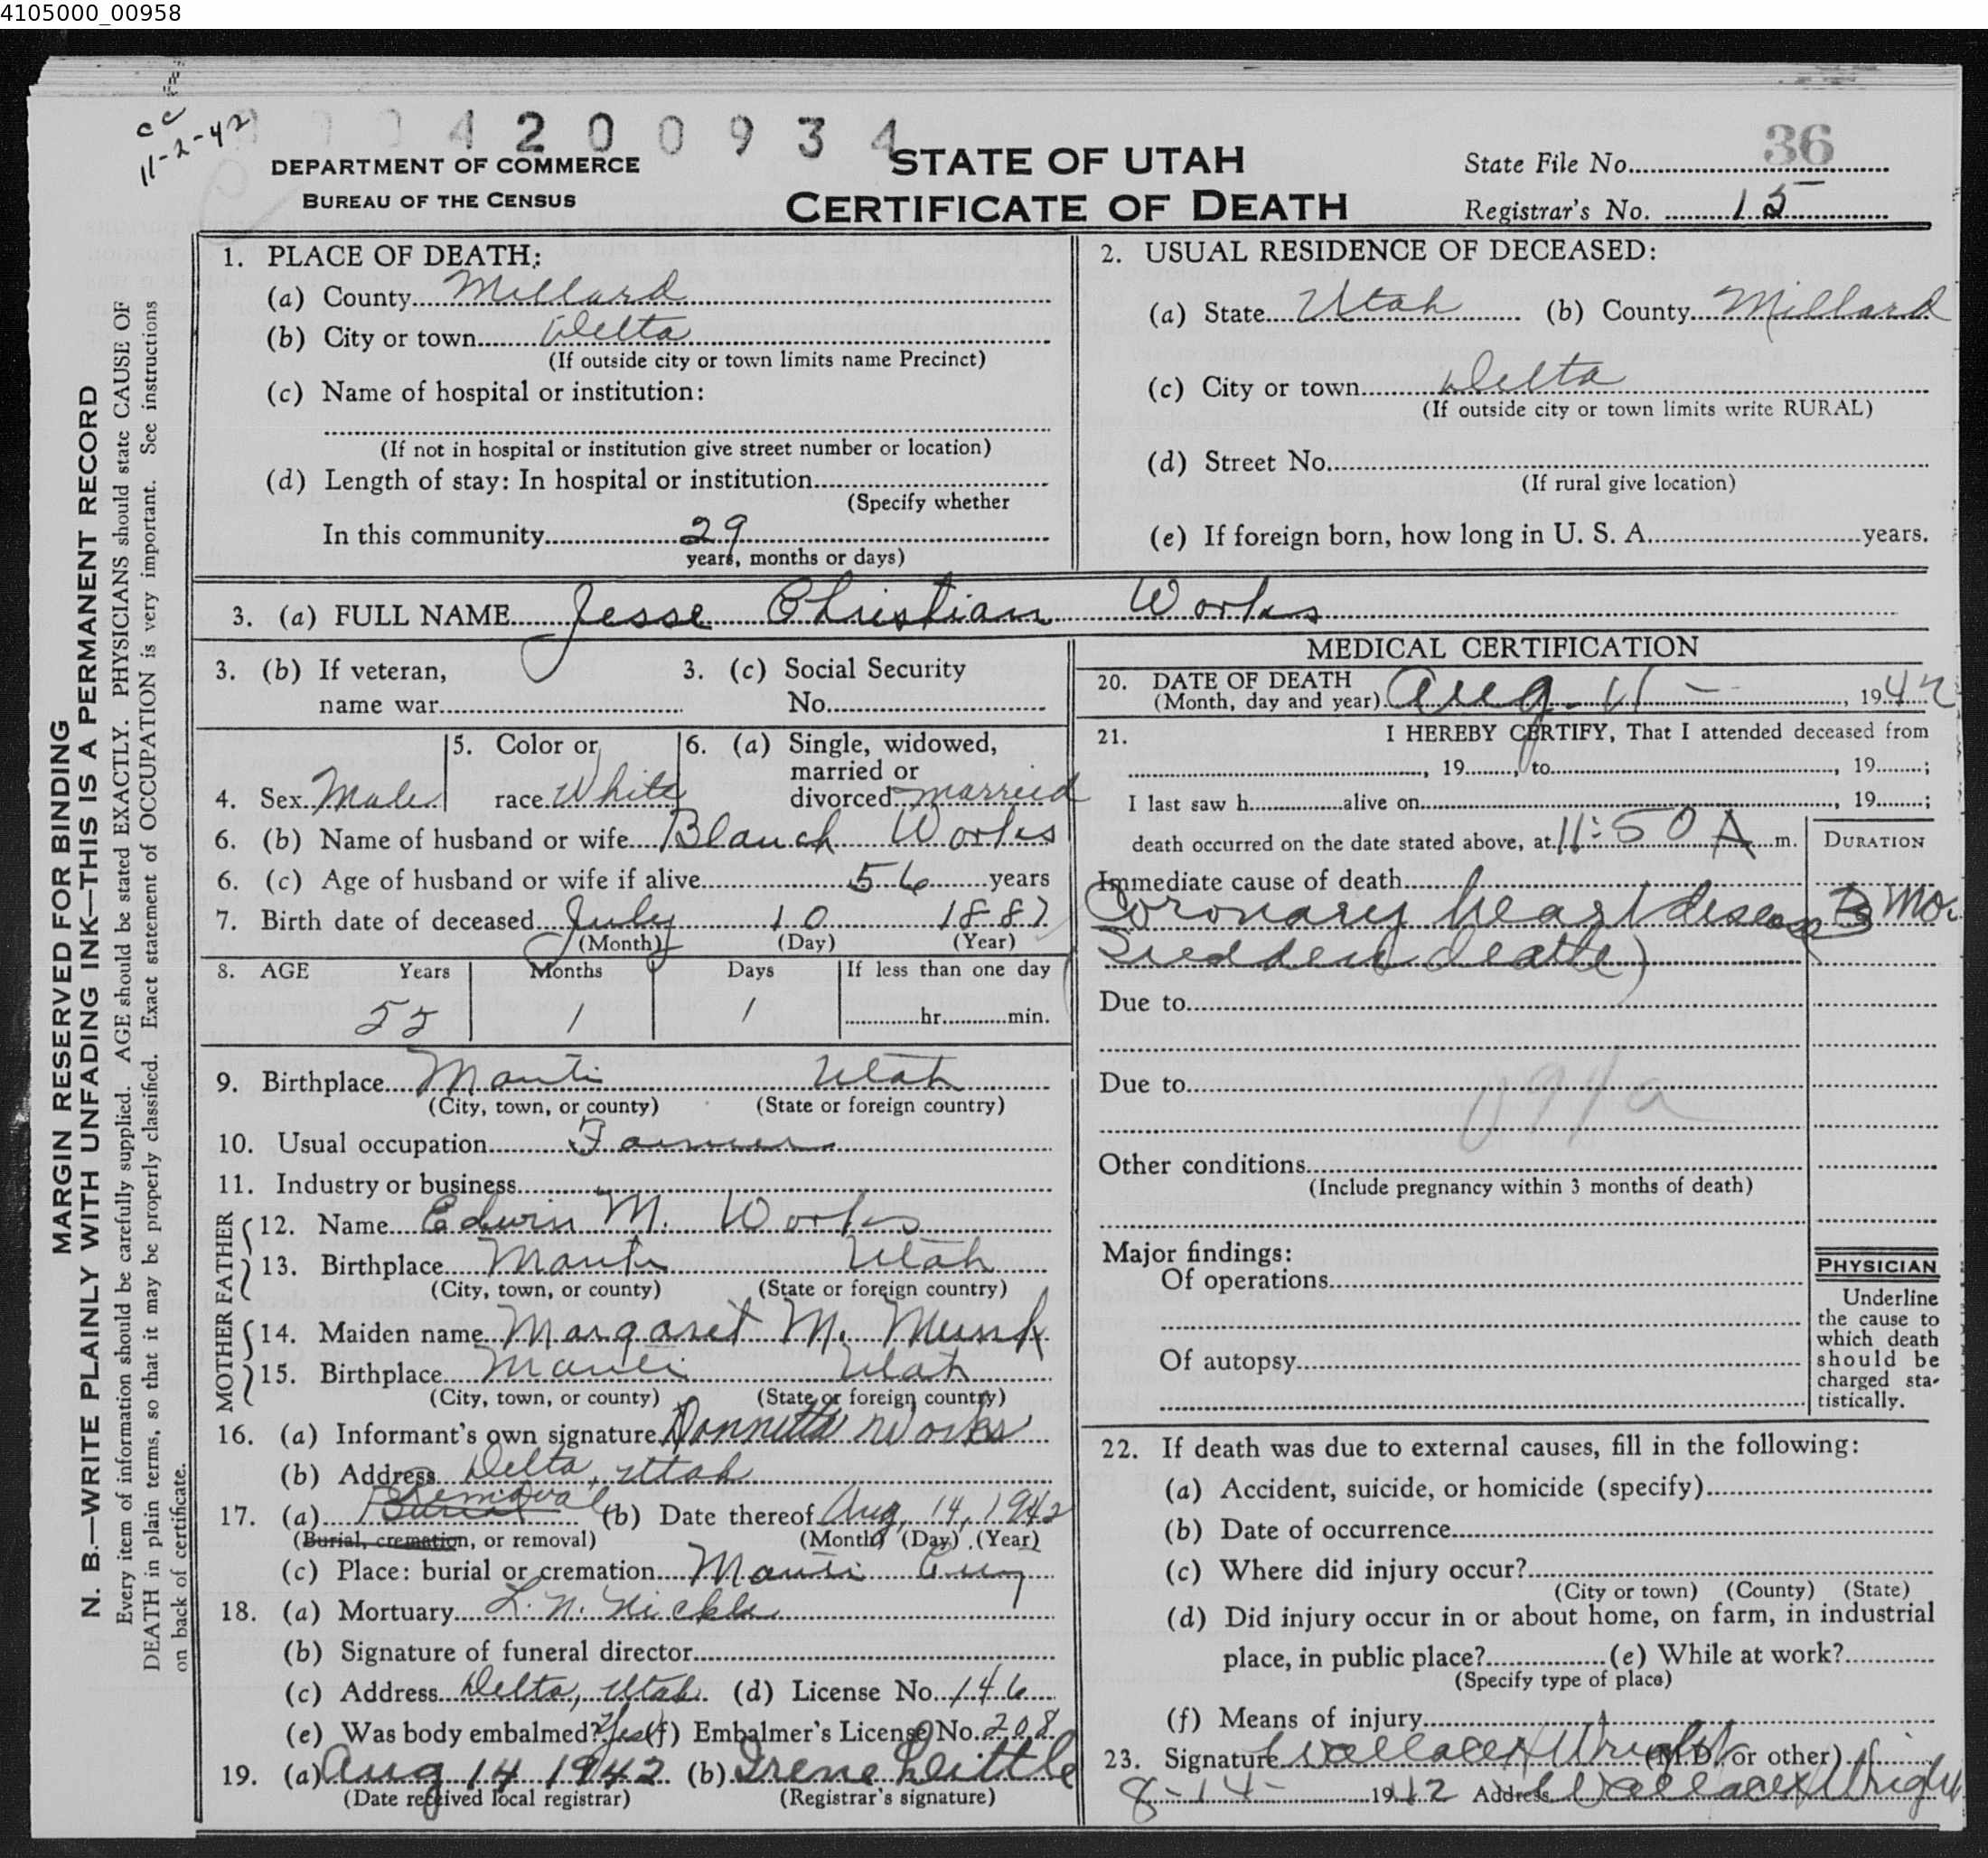 4105000_00958
cc
11-2-42
4 2 0 0 9 3 4
DEPARTMENT OF COMMERCE
BUREAU OF THE CENSUS
STATE OF UTAH
CERTIFICATE OF DEATH
State File No. 36
Registrar's No. 15
MARGIN RESERVED FOR BINDING
N. B.—WRITE PLAINLY WITH UNFADING INK—THIS IS A PERMANENT RECORD
Every item of information should be carefully supplied. AGE should be stated EXACTLY. PHYSICIANS should state CAUSE OF
DEATH in plain terms, so that it may be properly classified. Exact statement of OCCUPATION is very important. See instructions
on back of certificate.
1. PLACE OF DEATH:
(a) County Millard
(b) City or town Delta
(If outside city or town limits name Precinct)
(c) Name of hospital or institution:
(If not in hospital or institution give street number or location)
(d) Length of stay: In hospital or institution
(Specify whether
In this community 29
years, months or days)
2. USUAL RESIDENCE OF DECEASED:
(a) State Utah (b) County Millard
(c) City or town Delta
(If outside city or town limits write RURAL)
(d) Street No.
(If rural give location)
(e) If foreign born, how long in U. S. A. years.
3. (a) FULL NAME Jesse Christian Works
3. (b) If veteran,
name war
3. (c) Social Security
No.
4. Sex Male
5. Color or
race White
6. (a) Single, widowed,
married or
divorced married
6. (b) Name of husband or wife Blanch Works
6. (c) Age of husband or wife if alive 56 years
7. Birth date of deceased July 10 1887
(Month) (Day) (Year)
8. AGE Years Months Days If less than one day
55 1 1 hr. min.
9. Birthplace Manti Utah
(City, town, or county) (State or foreign country)
10. Usual occupation Farmer
11. Industry or business
FATHER
12. Name Edwin M. Works
13. Birthplace Manti Utah
(City, town, or county) (State or foreign country)
MOTHER
14. Maiden name Margaret M. Munk
15. Birthplace Manti Utah
(City, town, or county) (State or foreign country)
16. (a) Informant's own signature Donnetta Works
(b) Address Delta, Utah
Removal
17. (a) Burial (b) Date thereof Aug, 14, 1942
(Burial, cremation, or removal) (Month) (Day) (Year)
(c) Place: burial or cremation Manti
18. (a) Mortuary L. N. Nickle
(b) Signature of funeral director
(c) Address Delta, Utah. (d) License No. 146
(e) Was body embalmed? Yes (f) Embalmer's License No. 208
19. (a) Aug 14 1942 (b) Irene Little
(Date received local registrar) (Registrar's signature)
MEDICAL CERTIFICATION
20. DATE OF DEATH
(Month, day and year) Aug. 11 - , 1942
21. I HEREBY CERTIFY, That I attended deceased from
, 19 , to , 19 ;
I last saw h alive on , 19 ;
death occurred on the date stated above, at 11:50 A m.
DURATION
Immediate cause of death
Coronary heart disease 3 Mo.
Sudden death)
Due to
Due to
094a
Other conditions
(Include pregnancy within 3 months of death)
Major findings:
Of operations
Of autopsy
PHYSICIAN
Underline
the cause to
which death
should be
charged sta-
tistically.
22. If death was due to external causes, fill in the following:
(a) Accident, suicide, or homicide (specify)
(b) Date of occurrence
(c) Where did injury occur?
(City or town) (County) (State)
(d) Did injury occur in or about home, on farm, in industrial
place, in public place? (e) While at work?
(Specify type of place)
(f) Means of injury
23. Signature Wallace Wright (M.D. or other)
8-14- 1942 Address Wallace Wright